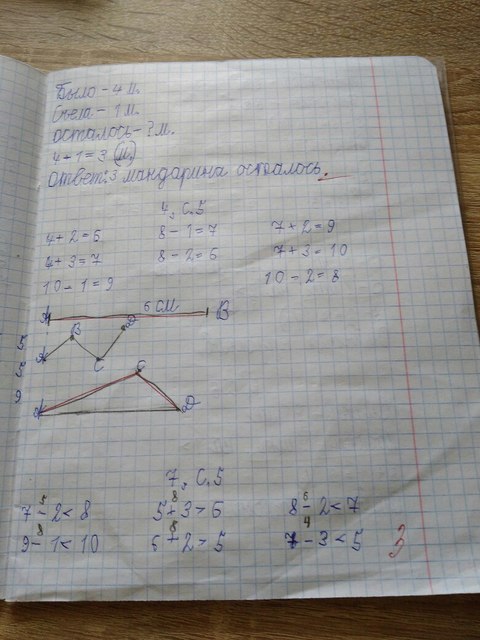 Было - 4 м.
Съела - 1 м.
осталось - ? м.
4+1=3 (м.)
Ответ: 3 мандарина осталось.
4, с.5
4+2=6 8-1=7 7+2=9
4+3=7 8-2=6 7+3=10
10-1=9 10-2=8
A 6 см B
B D
A C
C
A D
7, с.5
5 8 6
7-2<8 5+3>6 8-2<7
8 8 4
9-1<10 6+2>5 7-3<5
3